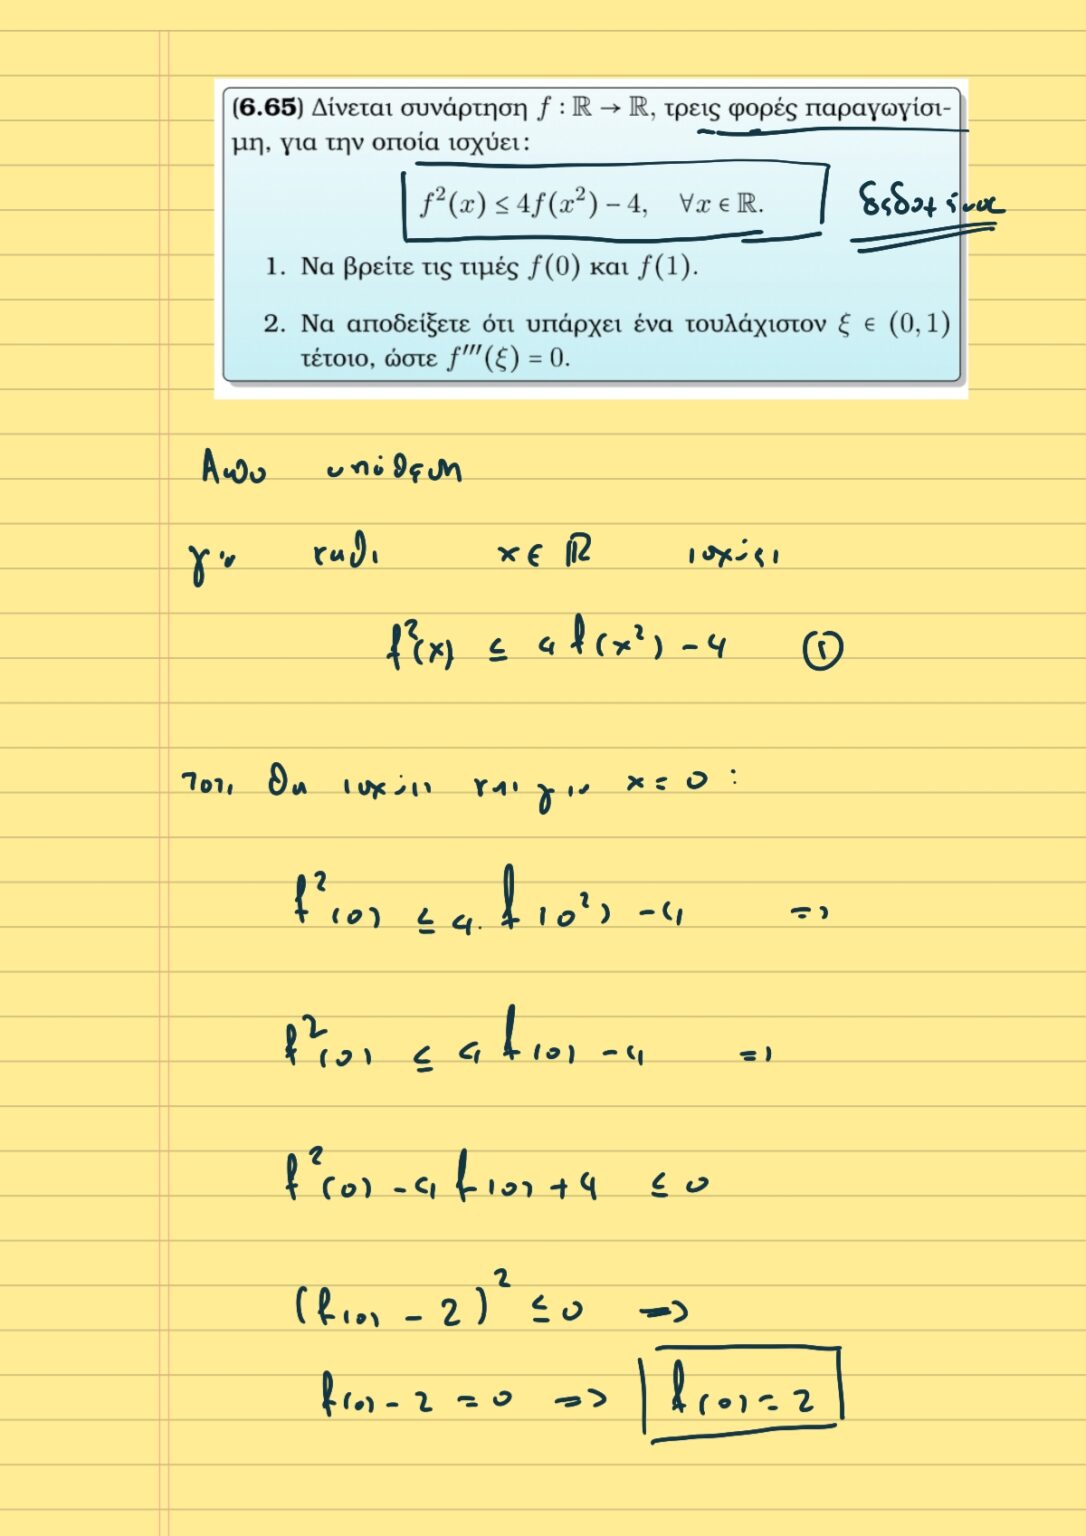 (6.65) Δίνεται συνάρτηση f : ℝ → ℝ, τρεις φορές παραγωγίσι-
μη, για την οποία ισχύει:
f²(x) ≤ 4f(x²) − 4, ∀x ∈ ℝ.
δεδομένα
1. Να βρείτε τις τιμές f(0) και f(1).
2. Να αποδείξετε ότι υπάρχει ένα τουλάχιστον ξ ∈ (0, 1)
τέτοιο, ώστε f′′′(ξ) = 0.
Από υπόθεση
για κάθε x ∈ ℝ ισχύει
f²(x) ≤ 4f(x²) − 4 ①
τότε θα ισχύει και για x = 0 :
f²(0) ≤ 4. f(0²) − 4 =>
f²(0) ≤ 4 f(0) − 4 =>
f²(0) − 4 f(0) + 4 ≤ 0
(f(0) − 2)² ≤ 0 =>
f(0) − 2 = 0 => f(0) = 2